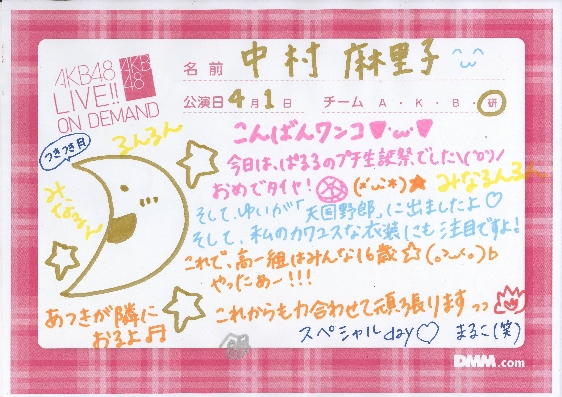 AKB48
LIVE!!
ON DEMAND
AKB
48
名前 中村 麻里子
公演日 4月1日 チーム A・K・B・研
つきつき目
るんるん
こんばんワンコ
今日は、ぱるるのプチ生誕祭でした\(^o^)/
おめでタイヤ!
みなるんるん
みなるん
そして、ゆいが「天国野郎」に出ましたよ♡
そして、私のカワユスな衣装にも注目ですよ!
これで、高一組はみんな16歳☆(。>ω<。)b
やったぁー!!!
これからも力合わせて頑張りますっっ
あつきが隣に
おるよ♬
スペシャルday♡ まるこ(笑)
DMM.com